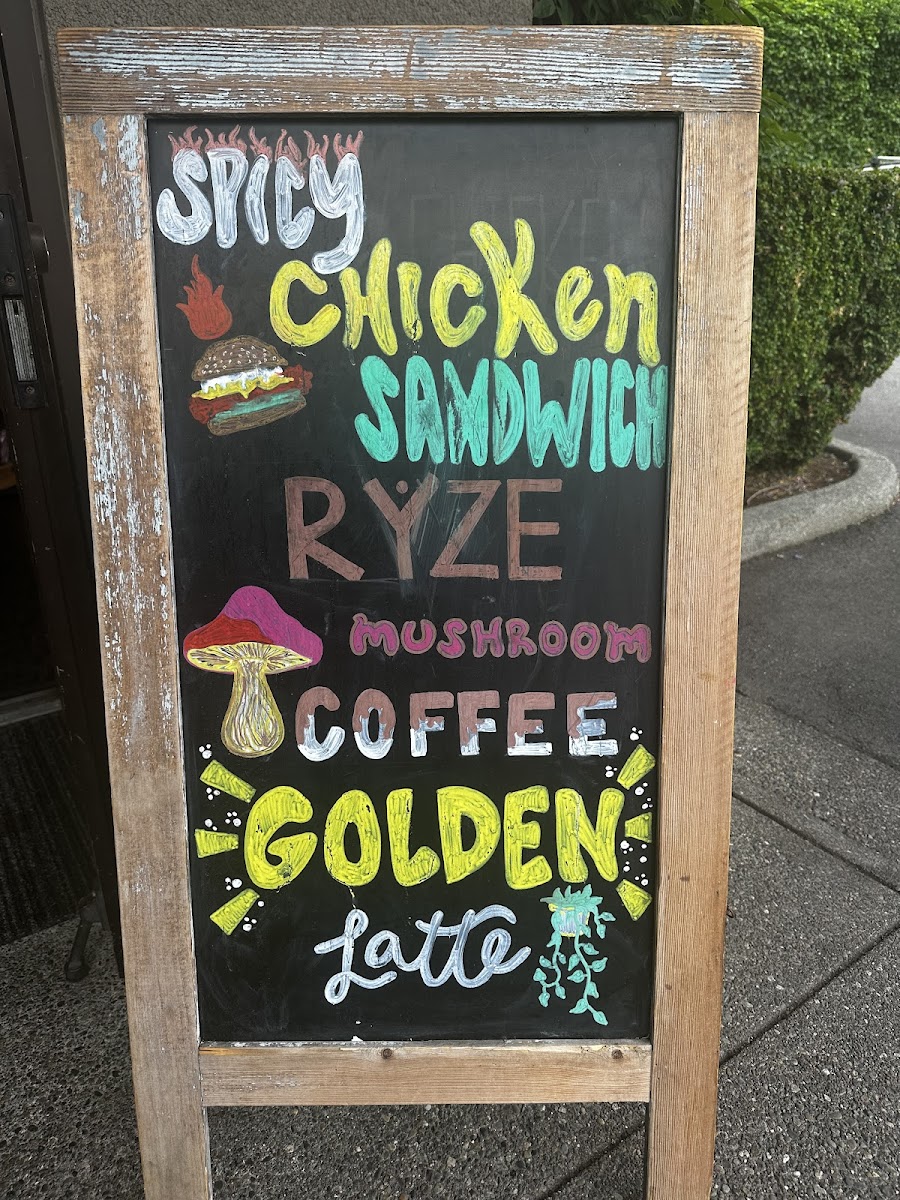 SPICY
CHICKEN
SANDWICH
RYZE
MUSHROOM
COFFEE
GOLDEN
Latte